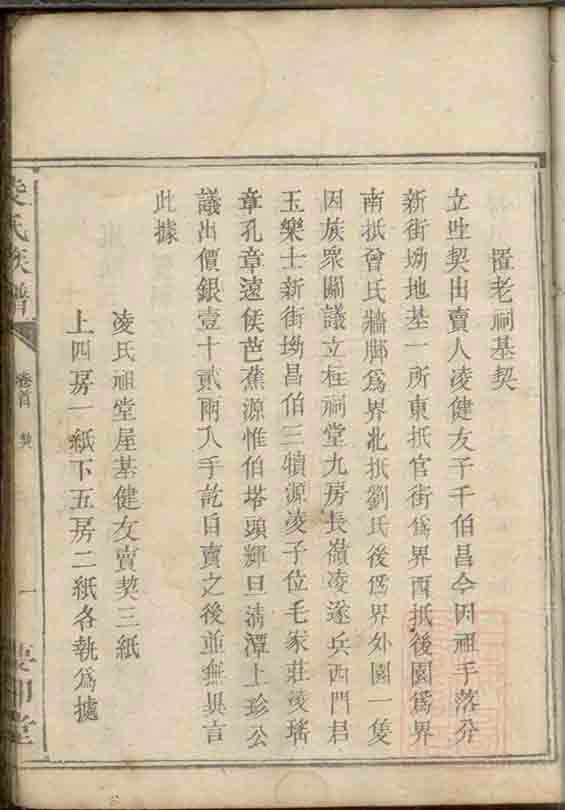 置老祠基契
立吐契出賣人凌健友子千伯昌今因祖手落分
新街坳地基一所東抵官街爲界西抵後園爲界
南抵曾氏牆脚爲界北抵劉氏後爲界外園一隻
因族眾鬮議立柱祠堂九房長嶺凌遂兵西門君
玉樂士新街坳昌伯三犢源凌子位毛家莊凌瑤
章孔章遠侯芭蕉源惟伯塔頭輝旦清潭上珍公
議出價銀壹十貳兩入手訖自賣之後並無異言
此據
凌氏祖堂屋基健友賣契三紙
上四房一紙下五房二紙各執爲據
凌氏族譜
卷首
契
一
堂